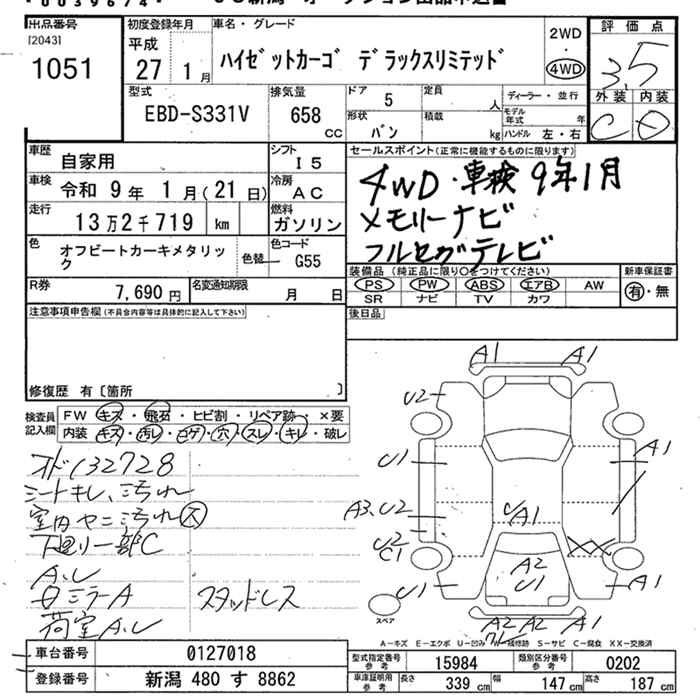 出品番号
[2043]
1051
初度登録年月
平成
27年 1月
車名・グレード
ハイゼットカーゴ デラックスリミテッド
2WD
・
4WD
評価点
3.5
外装 内装
C D
型式
EBD-S331V
排気量
658
CC
ドア
5
形状
バン
定員
人
積載
kg
ディーラー・並行
モデル年式
年
ハンドル 左・右
車歴
自家用
シフト
I5
車検
令和 9年 1月(21日)
冷房
AC
走行
13万2千719 km
燃料
ガソリン
色
オフビートカーキメタリック
色替
色コード
G55
R券
7,690円
名変通知期限
月 日
セールスポイント(正常に機能するものに限ります)
4WD・車検 9年1月
メモリーナビ
フルセグテレビ
装備品 (純正品に限り〇をつけてください)
PS PW ABS エアB AW
SR ナビ TV カワ
新車保証書
有・無
後日品
注意事項申告欄(不具合内容等は具体的に記入して下さい)
修復歴 有〔箇所 〕
検査員記入欄
FW キズ・飛石・ヒビ割・リペア跡・×要
内装 キズ・汚レ・コゲ・穴・スレ・キレ・破レ
オド132728
シートキレ、汚れ
室内ヤニ汚れ大
下廻り一部C
A,U
ロミラーA
荷室A,U
スタッドレス
A1 A1
U2
U1
A1
A3,U2
U2
C1
U1
A1
A2
U1
XX
A1
A2 A2 A1
スペア
A-キズ E-エクボ U-凹み W-補修跡 S-サビ C-腐食 XX-交換済
車台番号
0127018
登録番号
新潟 480 す 8862
型式指定番号
参考
15984
類別区分番号
参考
0202
車庫証明用
参考
長さ 339 cm 幅 147 cm 高さ 187 cm